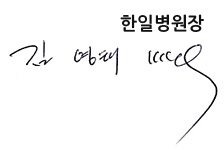 한일병원장
김 영태